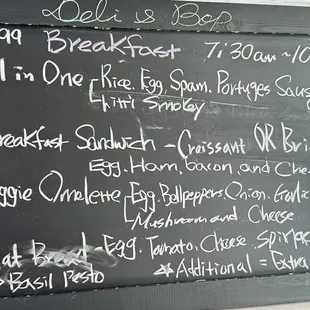 Deli is Bop
99 Breakfast 7:30am ~10
l in One - Rice, Egg, Spam, Portuges Saus
Smokey
reakfast Sandwich - Croissant OR Bri
Egg, Ham, bacon, and Che
ggie Omelette - Egg. Bellpeppers. Onion. Garlic
Mushroom and Cheese
at Bread - Egg. Tomato. Cheese.
Basil Pesto
Additional = Extra